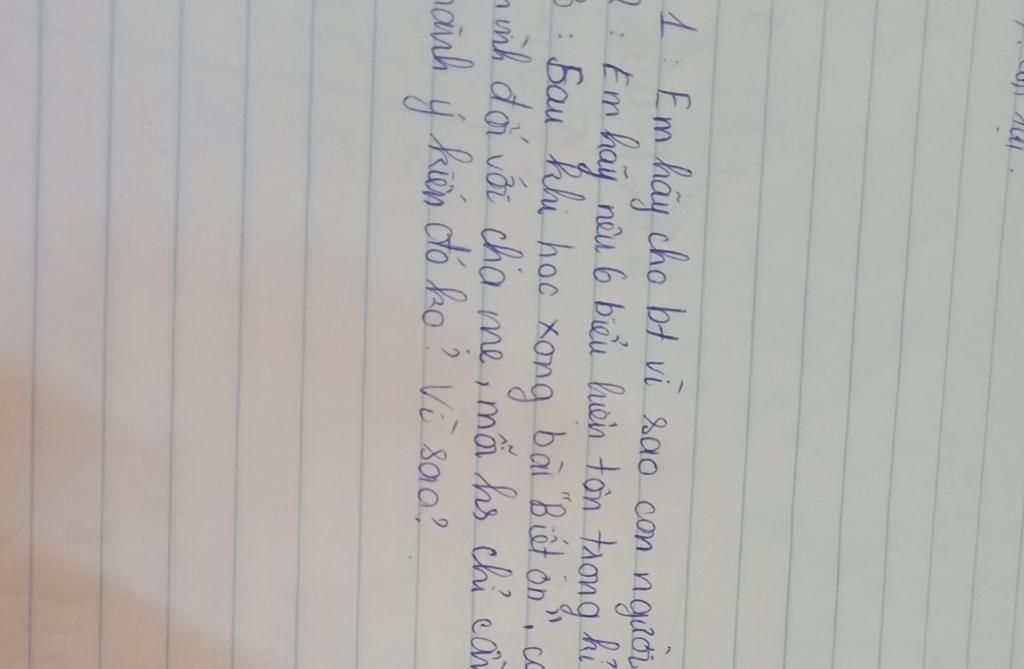 1 : Em hãy cho bt vì sao con người
: Em hãy nêu 6 biểu hiện tôn trọng
: Sau khi học xong bài "Biết ơn",
mình đối với cha mẹ, mỗi hs chỉ cần
thành ý kiến đó ko? Vì sao?